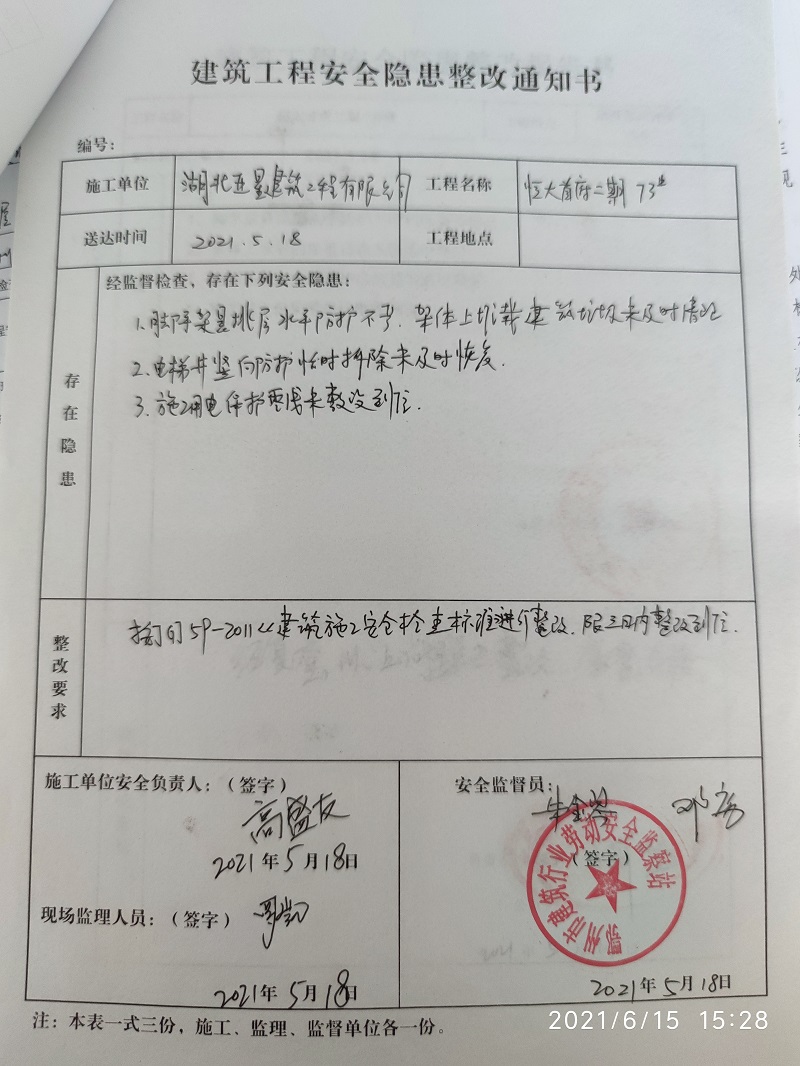 建筑工程安全隐患整改通知书
编号：
施工单位 湖北 建筑工程有限公司 工程名称 恒大首府二期 73#
送达时间 2021.5.18 工程地点
存在隐患
经监督检查，存在下列安全隐患：
1.脚手架 挑层水平防护不 . 架体上堆载建筑垃圾未及时清理
2.电梯井竖向防护临时拆除未及时恢复.
3.施工用电保护 未敷设到位.
整改要求
按 59-2011《建筑施工安全检查标准进行整改. 限三日内整改到位.
施工单位安全负责人：（签字）
高盛友
2021年5月18日
现场监理人员：（签字）
2021年5月18日
安全监督员：
（签字）
鄂州市建筑行业劳动安全监察站
2021年5月18日
注：本表一式三份，施工、监理、监督单位各一份。
2021/6/15 15:28